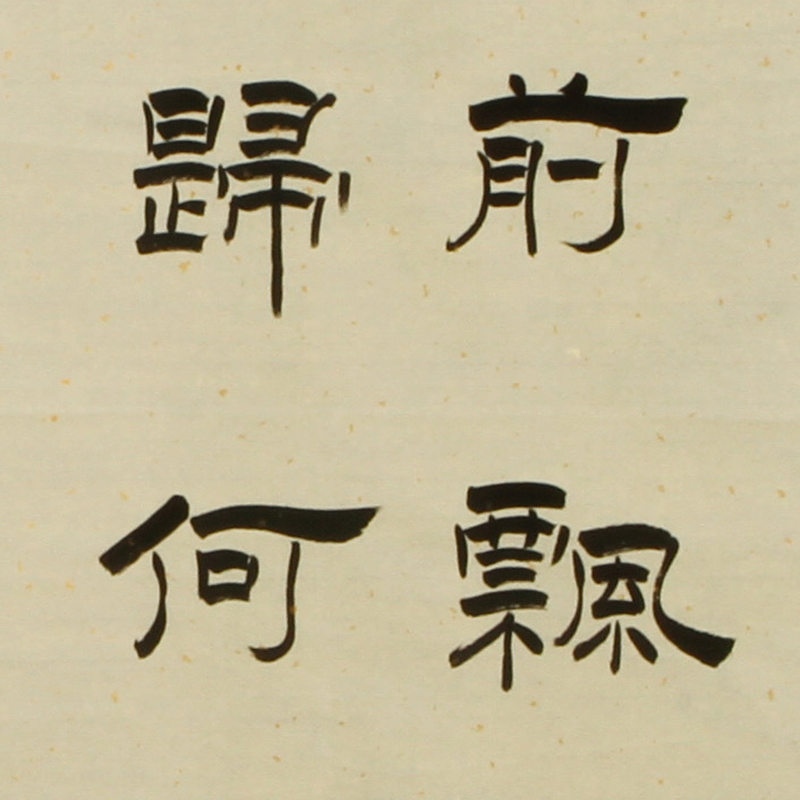 前飄
歸何